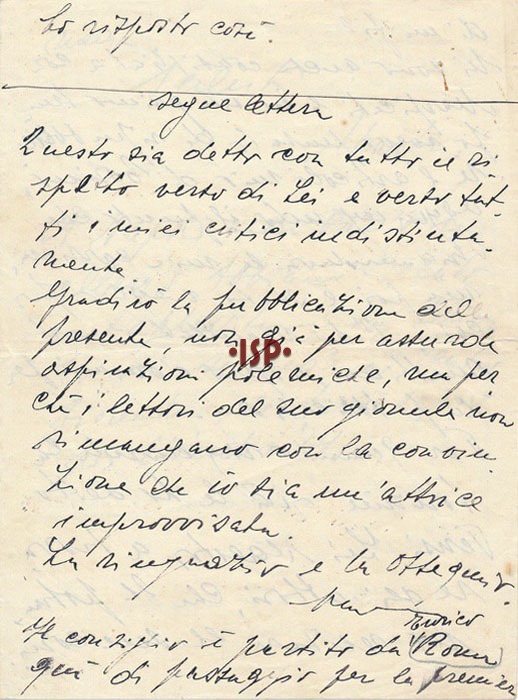 ho risposto così:
segue lettera
Questo sia detto con tutto il ri
spetto verso di Lei e verso tut-
ti i miei critici indistinta-
mente
Gradirò la pubblicazione del
presente, non già per assurde
·ISP·
aspirazioni polemiche, ma per
chè i lettori del suo giornale non
rimangano con la convin
zione che io sia un'attrice
improvvisata.
La ringrazio e la ossequio.
Enrico
Il consiglio è partito da Roma
qui di passaggio per la première